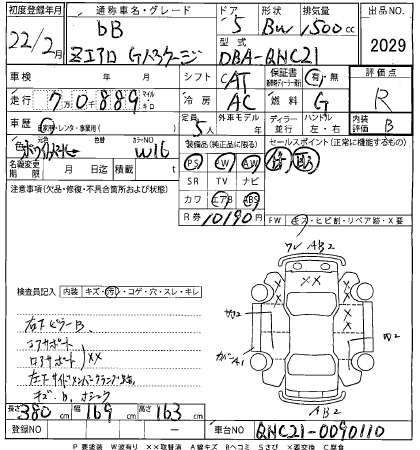 初度登録年月 通称車名・グレード ドア 形状 排気量 出品NO.
22年2月 bB 5 BW 1500cc 2029
ZエアロGパッケージ
型式 DBA-QNC21
車検 年 月 シフト CAT 保証書 有・無 評価点
走行 70889 マイル キロ 冷房 AC 燃料 G R
車歴 自家用・レンタ・事業用 定員 5人 外車モデル 年 ディーラー 並行 ハンドル 左・右 内装評価 B
色 元色 ホワイトパール 色替 カラーNO W16 装備品(純正品に限る) セールスポイント(正常に機能するもの)
PS PW AW
名義変更期限 月 日迄 積載 t SR TV ナビ
注意事項(欠品・修復・不具合箇所および状態) カワ エアB ABS
R券 10190円 FW キズ・ヒビ割・リペア跡・X要
検査員記入 内装 キズ・汚・コゲ・穴・スレ・キレ
右下ピラーB、
コアサポート
ロアサポート XX
左下サイドメンバー
AB2
XX
AB2
長さ 380cm 幅 169cm 高さ 163cm
登録NO 車台NO QNC21-0090110
P要塗装 W波有り XX取替済 A線キズ Bヘコミ Sさび X要交換 C腐食